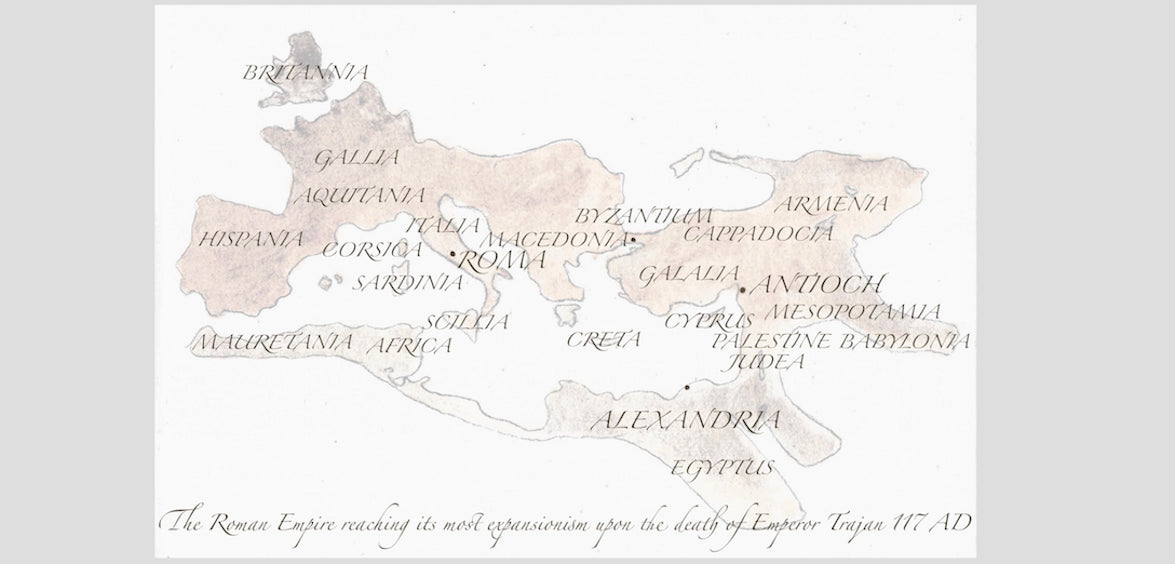 BRITANNIA
GALLIA
AQUITANIA
ITALIA
BYZANTIUM
ARMENIA
HISPANIA
CORSICA
MACEDONIA
CAPPADOCIA
ROMA
SARDINIA
GALALIA
ANTIOCH
SCILLIA
CYPRUS
MESOPOTAMIA
MAURETANIA
AFRICA
CRETA
PALESTINE
BABYLONIA
JUDEA
ALEXANDRIA
EGYPTUS
The Roman Empire reaching its most expansionism upon the death of Emperor Trajan 117 AD